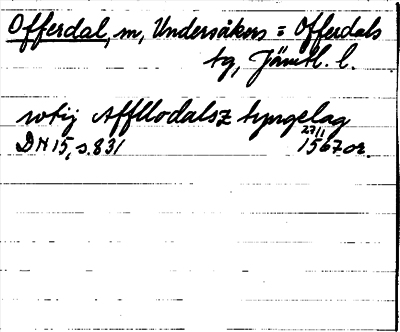 Offerdal, m, Undersåkers = Offerdals
tg, Jämtl. l.
wtij Affllodalsz tyngelag
27/11
DN 15, s. 831 1567 or.